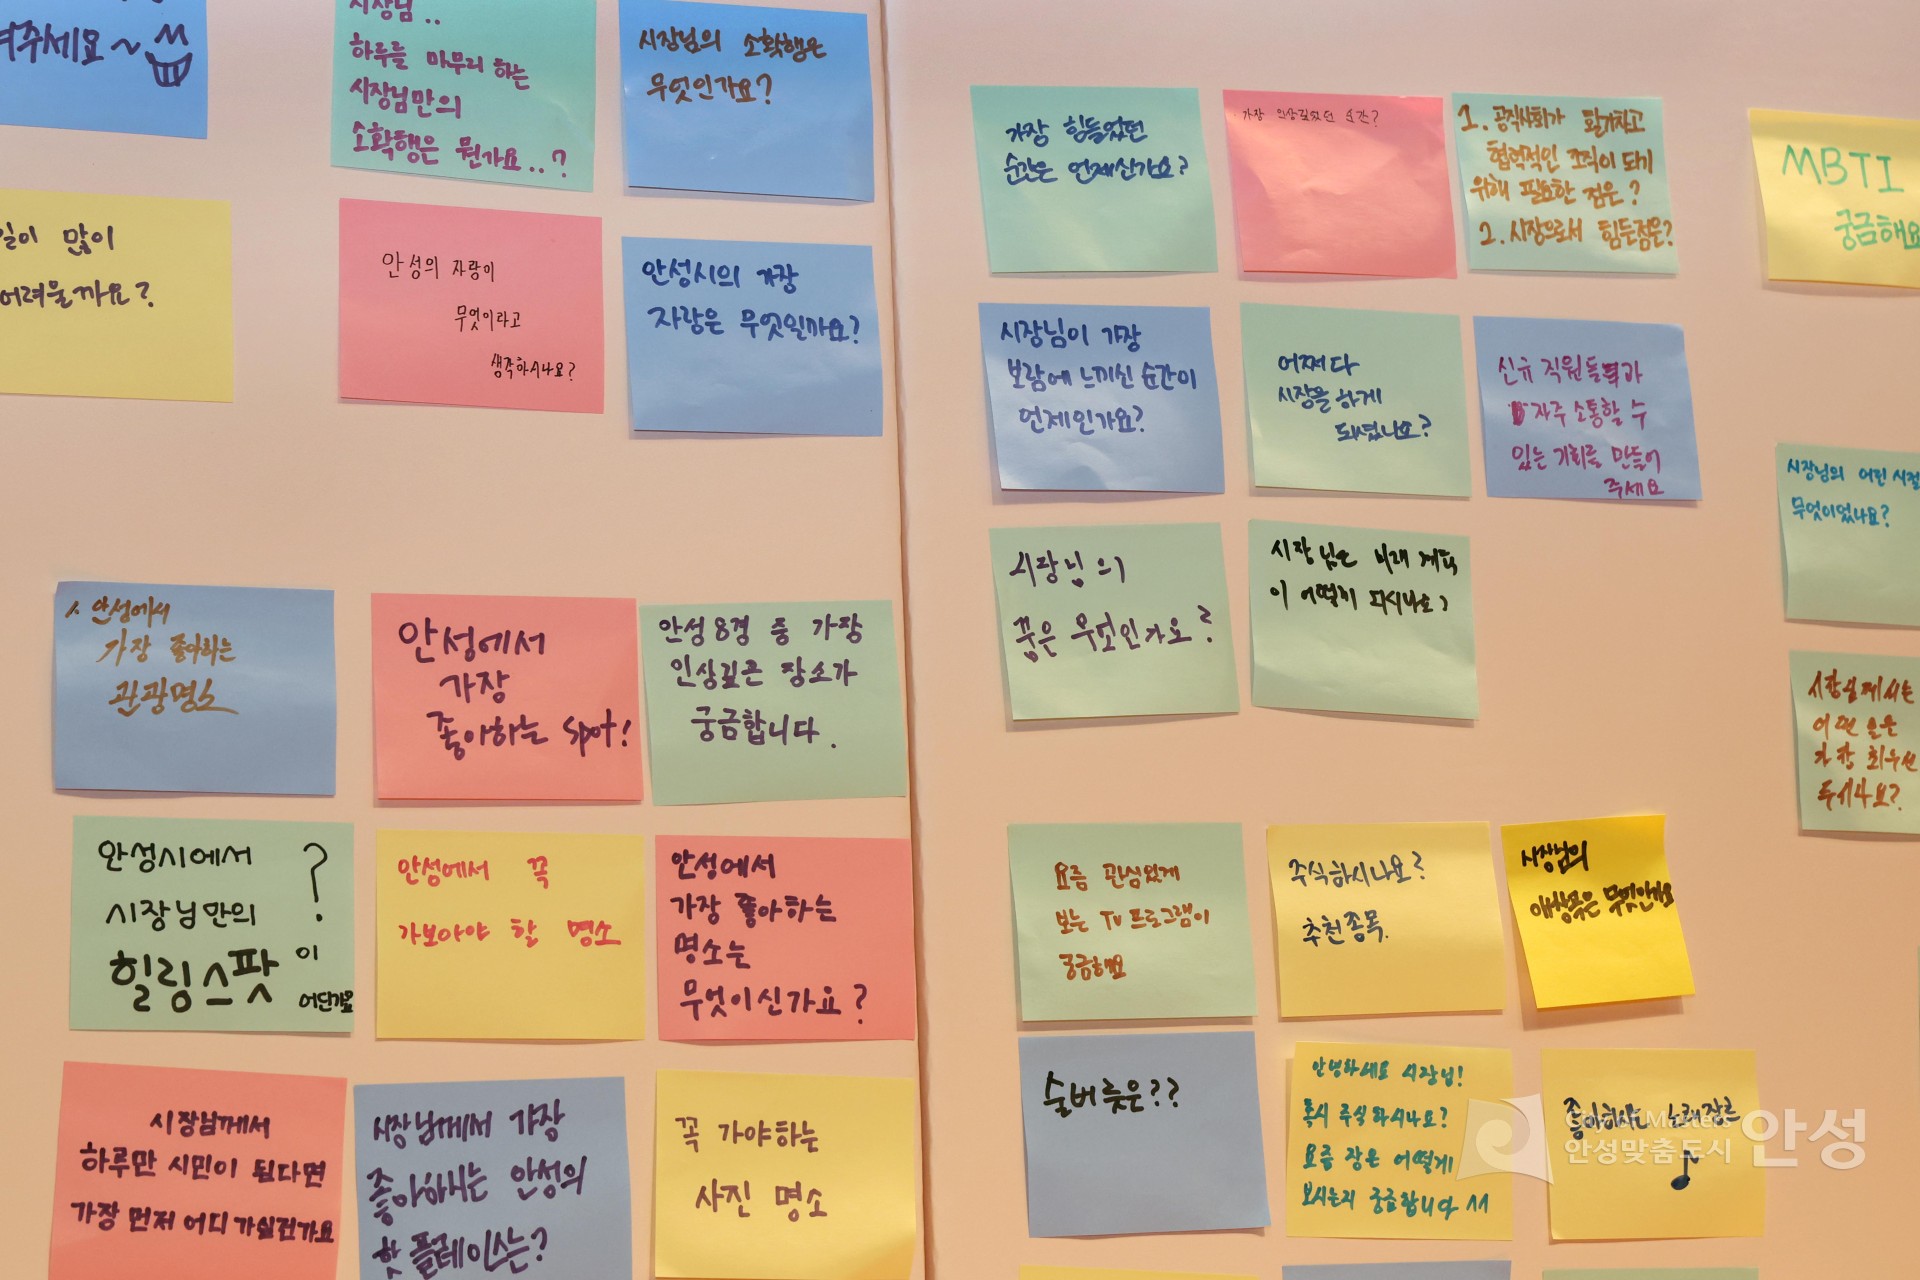 여주세요~
시장님..
하루를 마무리 하는
시장님만의
소확행은 뭔가요..?
시장님의 소확행은
무엇인가요?
일이 많이
어려울까요?
안성의 자랑이
무엇이라고
생각하시나요?
안성시의 가장
자랑은 무엇일까요?
1. 안성에서
가장 좋아하는
관광명소
안성에서
가장
좋아하는 spot!
안성8경 중 가장
인상깊은 장소가
궁금합니다.
안성시에서
시장님만의
힐링스팟이
어딘가요?
안성에서 꼭
가보아야 할 명소
안성에서
가장 좋아하는
명소는
무엇이신가요?
시장님께서
하루만 시민이 된다면
가장 먼저 어디 가실건가요
시장님께서 가장
좋아하시는 안성의
핫플레이스는?
꼭 가야하는
사진 명소
가장 힘들었던
순간은 언제신가요?
가장 인상깊었던 순간?
1. 공직사회가 활기차고
협력적인 조직이 되기
위해 필요한 점은?
2. 시장으로서 힘든점은?
MBTI
궁금해요
시장님이 가장
보람에 느끼신 순간이
언제인가요?
어쩌다
시장을 하게
되셨나요?
신규 직원들과
자주 소통할 수
있는 기회를 만들어
주세요
시장님의 어린시절
무엇이었나요?
시장님의
꿈은 무엇인가요?
시장님은 미래 계획
이 어떻게 되시나요?
시장님께서는
어떤 일을
가장 최우선
두시나요?
요즘 관심있게
보는 TV 프로그램이
궁금해요
주식하시나요?
추천종목.
시장님의
애창곡은 무엇인가요
술버릇은??
안녕하세요 시장님!
혹시 주식 하시나요?
요즘 장은 어떻게
보시는지 궁금합니다 ^^
좋아하시는 노래장르
안성맞춤도시 안성